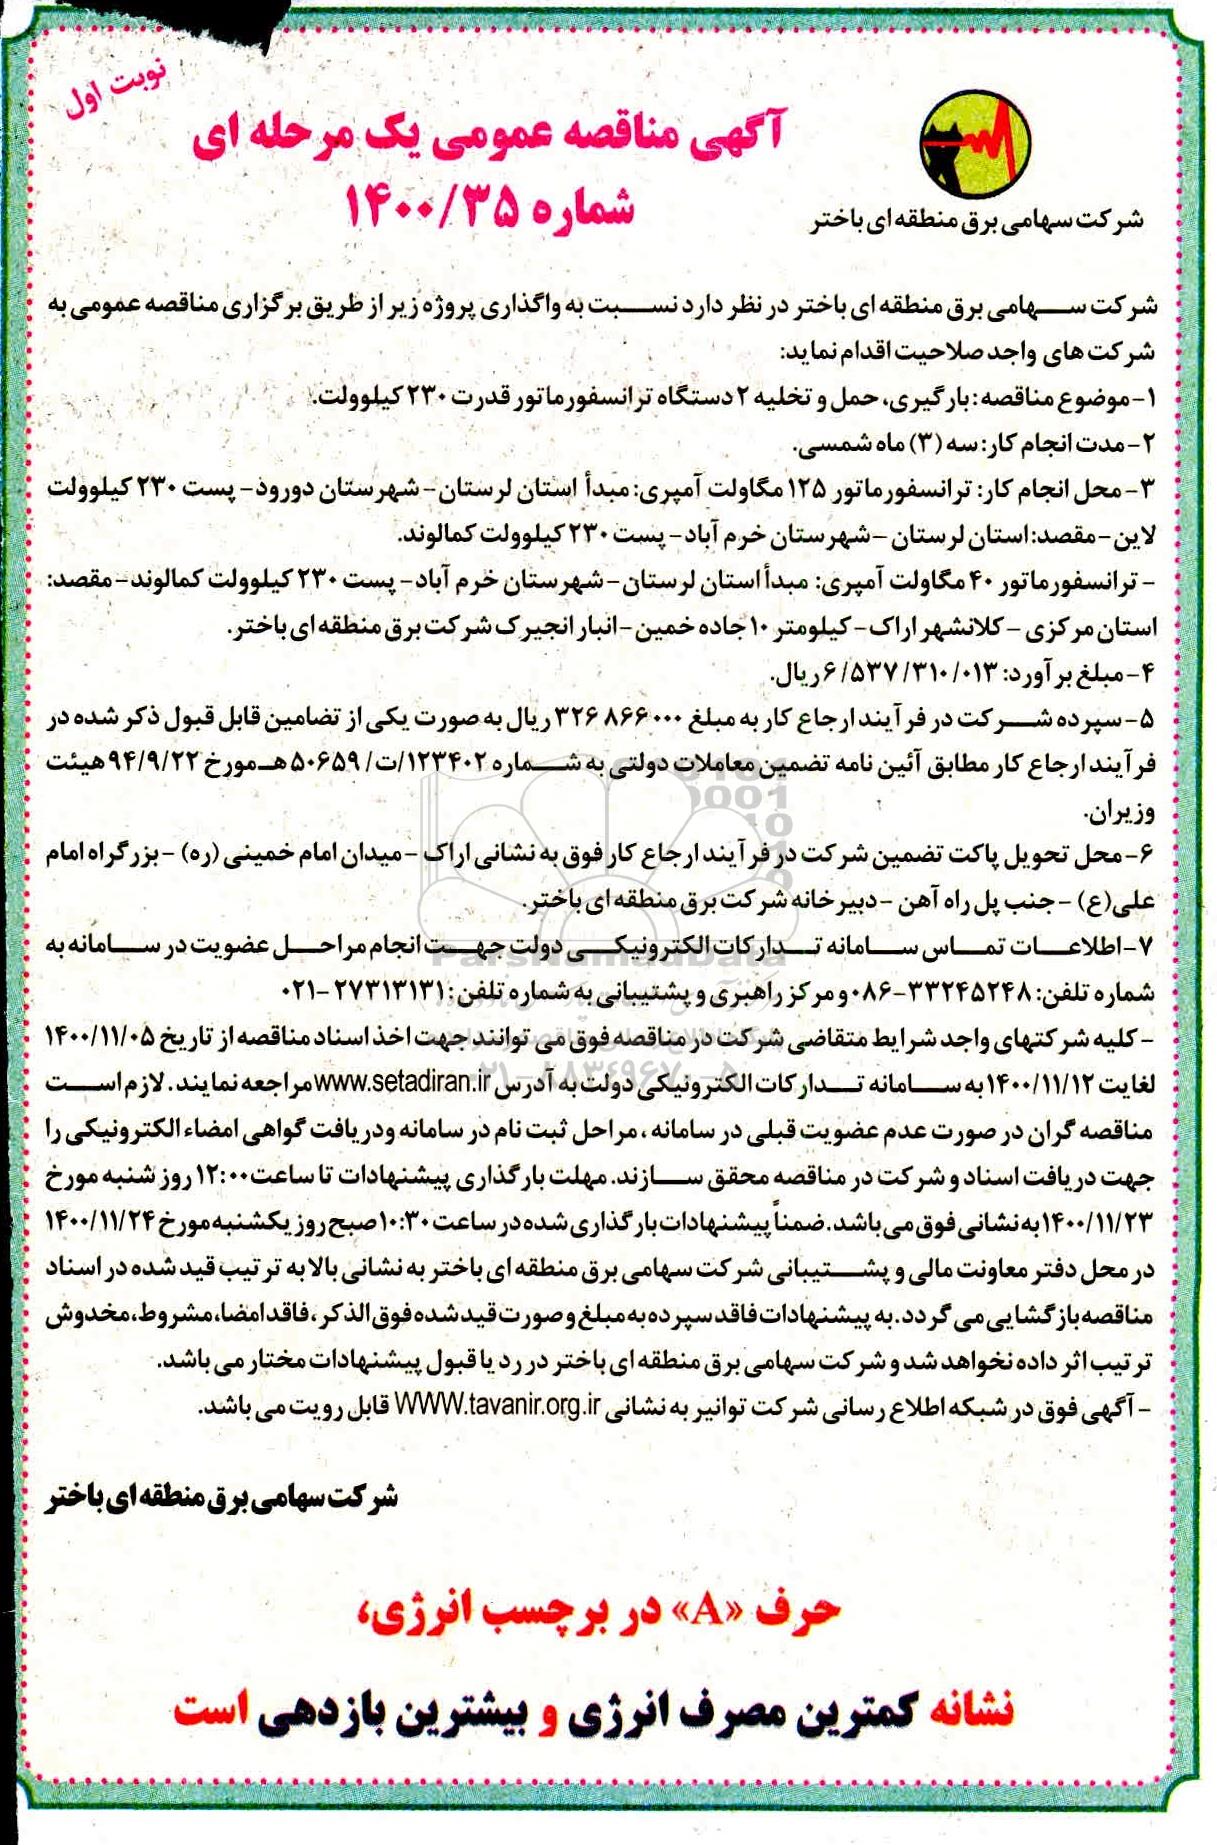 نوبت اول
آگهی مناقصه عمومی یک مرحله ای
شماره ۱۴۰۰/۳۵
شرکت سهامی برق منطقه ای باختر
شرکت سهامی برق منطقه ای باختر در نظر دارد نسبت به واگذاری پروژه زیر از طریق برگزاری مناقصه عمومی به
شرکت های واجد صلاحیت اقدام نماید:
۱-موضوع مناقصه: بارگیری، حمل و تخلیه ۲ دستگاه ترانسفورماتور قدرت ۲۳۰ کیلوولت.
۲-مدت انجام کار: سه (۳) ماه شمسی.
۳-محل انجام کار: ترانسفورماتور ۱۲۵ مگاولت آمپری: مبدأ استان لرستان-شهرستان دورود-پست ۲۳۰ کیلوولت
لاین-مقصد: استان لرستان-شهرستان خرم آباد-پست ۲۳۰ کیلوولت کمالوند.
- ترانسفورماتور ۴۰ مگاولت آمپری: مبدأ استان لرستان-شهرستان خرم آباد-پست ۲۳۰ کیلوولت کمالوند-مقصد:
استان مرکزی-کلانشهر اراک-کیلومتر ۱۰ جاده خمین-انبار انجیرک شرکت برق منطقه ای باختر.
۴-مبلغ برآورد: ۶/۵۳۷/۳۱۰/۰۱۳ ریال.
۵-سپرده شرکت در فرآیند ارجاع کار به مبلغ ۳۲۶ ۸۶۶ ۰۰۰ ریال به صورت یکی از تضامین قابل قبول ذکر شده در
فرآیند ارجاع کار مطابق آئین نامه تضمین معاملات دولتی به شماره ۱۲۳۴۰۲/ت/۵۰۶۵۹هـ مورخ ۹۴/۹/۲۲ هیئت
وزیران.
۶-محل تحویل پاکت تضمین شرکت در فرآیند ارجاع کار فوق به نشانی اراک-میدان امام خمینی (ره)-بزرگراه امام
علی(ع)-جنب پل راه آهن-دبیرخانه شرکت برق منطقه ای باختر.
۷-اطلاعات تماس سامانه تدارکات الکترونیکی دولت جهت انجام مراحل عضویت در سامانه به
شماره تلفن: ۳۳۲۴۵۲۴۸-۰۸۶ و مرکز راهبری و پشتیبانی به شماره تلفن: ۲۷۳۱۳۱۳۱-۰۲۱
- کلیه شرکتهای واجد شرایط متقاضی شرکت در مناقصه فوق می توانند جهت اخذ اسناد مناقصه از تاریخ ۱۴۰۰/۱۱/۰۵
لغایت ۱۴۰۰/۱۱/۱۲ به سامانه تدارکات الکترونیکی دولت به آدرس www.setadiran.ir مراجعه نمایند. لازم است
مناقصه گران در صورت عدم عضویت قبلی در سامانه، مراحل ثبت نام در سامانه ودریافت گواهی امضاء الکترونیکی را
جهت دریافت اسناد و شرکت در مناقصه محقق سازند. مهلت بارگذاری پیشنهادات تا ساعت ۱۲:۰۰ روز شنبه مورخ
۱۴۰۰/۱۱/۲۳ به نشانی فوق می باشد. ضمناً پیشنهادات بارگذاری شده در ساعت ۱۰:۳۰ صبح روز یکشنبه مورخ ۱۴۰۰/۱۱/۲۴
در محل دفتر معاونت مالی و پشتیبانی شرکت سهامی برق منطقه ای باختر به نشانی بالا به ترتیب قید شده در اسناد
مناقصه بازگشایی می گردد. به پیشنهادات فاقد سپرده به مبلغ و صورت قید شده فوق الذکر، فاقد امضا، مشروط، مخدوش
ترتیب اثر داده نخواهد شد و شرکت سهامی برق منطقه ای باختر در رد یا قبول پیشنهادات مختار می باشد.
- آگهی فوق در شبکه اطلاع رسانی شرکت توانیر به نشانی WWW.tavanir.org.ir قابل رویت می باشد.
شرکت سهامی برق منطقه ای باختر
حرف «A» در برچسب انرژی،
نشانه کمترین مصرف انرژی و بیشترین بازدهی است
ParsNamadData
۰۲۱-۸۸۳۴۹۶۷۰-۵